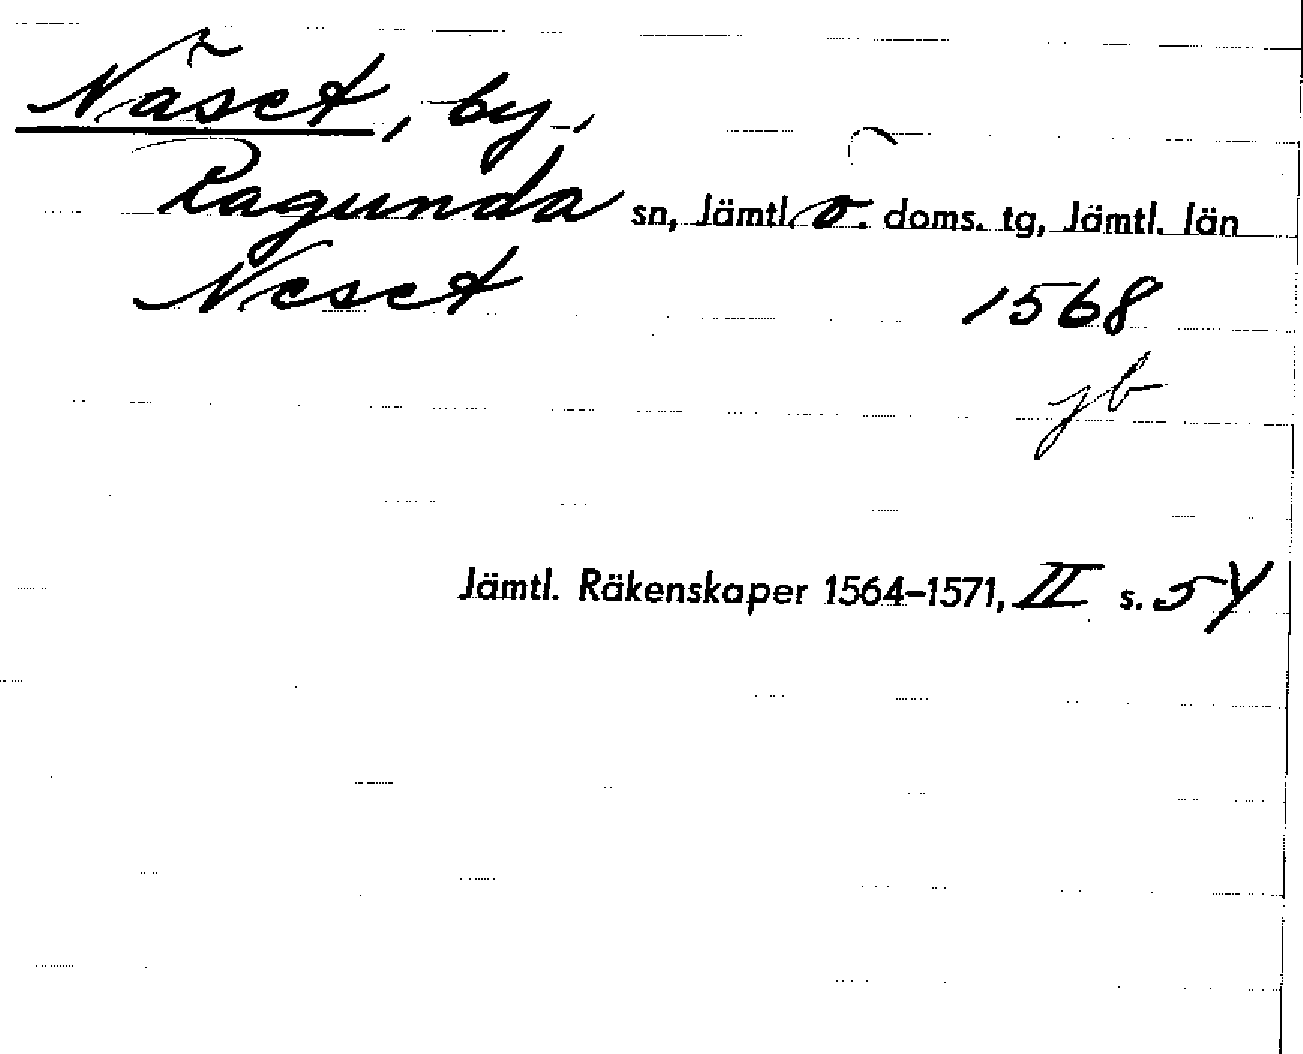 Näset, by,
Ragunda sn, Jämtl. ö. doms. tg, Jämtl. län
Neset 1568
jb
Jämtl. Räkenskaper 1564-1571, II s. 54